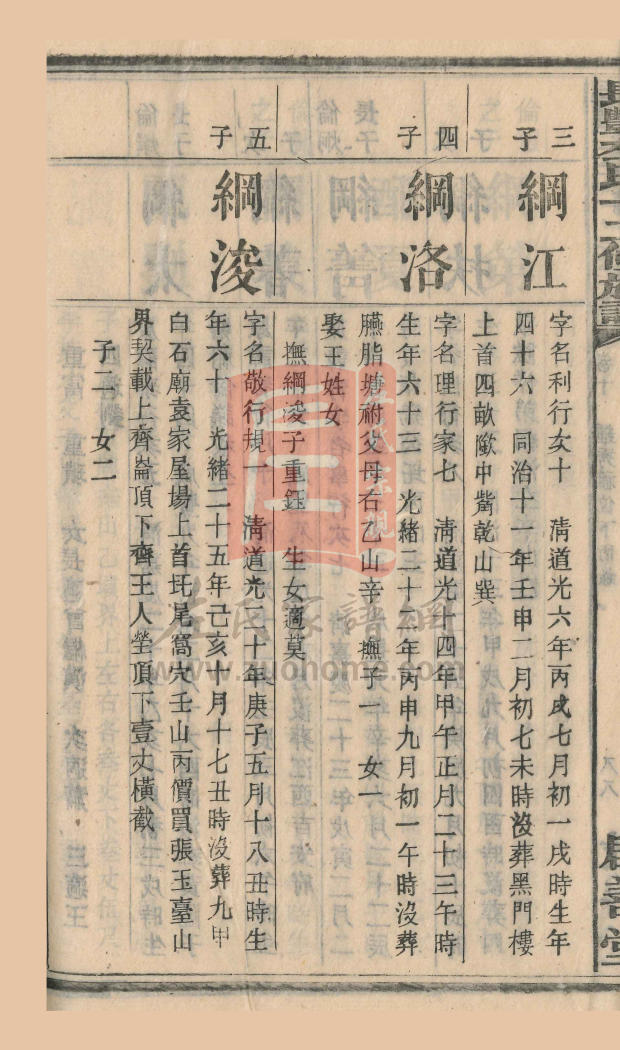 三子
綱江
字名利行亥十　清道光六年丙戌七月初一戌時生年
四十六　同治十一年壬申二月初七未時沒葬黑門樓
上首四畝歐中嘴乾山巽
四子
綱洛
字名理行家七　清道光十四年甲午正月二十三午時
生年六十三　光緒二十二年丙申九月初一午時沒葬
臙脂塘祔父母右乙山辛　撫子一　女一
娶王姓女
撫綱浚子重鈺　生女適莫
五子
綱浚
字名敬行規一　清道光二十年庚子五月十八丑時生
年六十　光緒二十五年己亥十月十七丑時沒葬九甲
白石廟袁家屋場上首圫尾窩穴壬山丙價買張玉臺山
界契載上齊崙頂下齊王人塋頂下壹丈橫截
子二　女二
左氏家譜網
www.zuohome.com